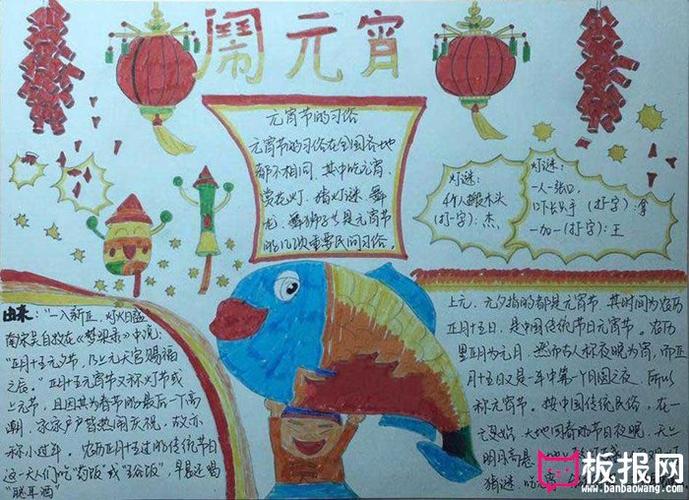 闹元宵
元宵节的习俗
元宵节的习俗在全国各地
都不相同,其中吃元宵、
赏花灯、猜灯谜、舞
龙、舞狮子是元宵节
的几项重要民间习俗。
灯谜:
4个人搬木头
(打一字):杰
灯谜:
一人一张口,
口下长只手(打一字):拿
一加一(打一字):王
由来:"一入新正,灯火日盛
南宋吴自牧在《梦梁录》中说:
"正月十五元夕节,乃上元天官赐福
之辰。"正月十五元宵节又称灯节或
上元节,且因其为春节的最后一个高
潮,家家户户皆热闹庆祝,故亦
称小过年。农历正月十五过的传统节日
这一天人们吃"药饭"或"五谷饭",早晨还喝
"聪耳酒"
上元、元夕指的都是元宵节,其时间为农历
正月十五日,是中国传统节日元宵节。农历
里正月为元月,然而古人称夜晚为宵,而正
月十五日又是一年中第一个月圆之夜,所以
称元宵节。按中国传统民俗,在一
元复始,大地回春的节日夜晚,天上
明月高悬
猜谜、吃
板报网
www.banbaowang.com